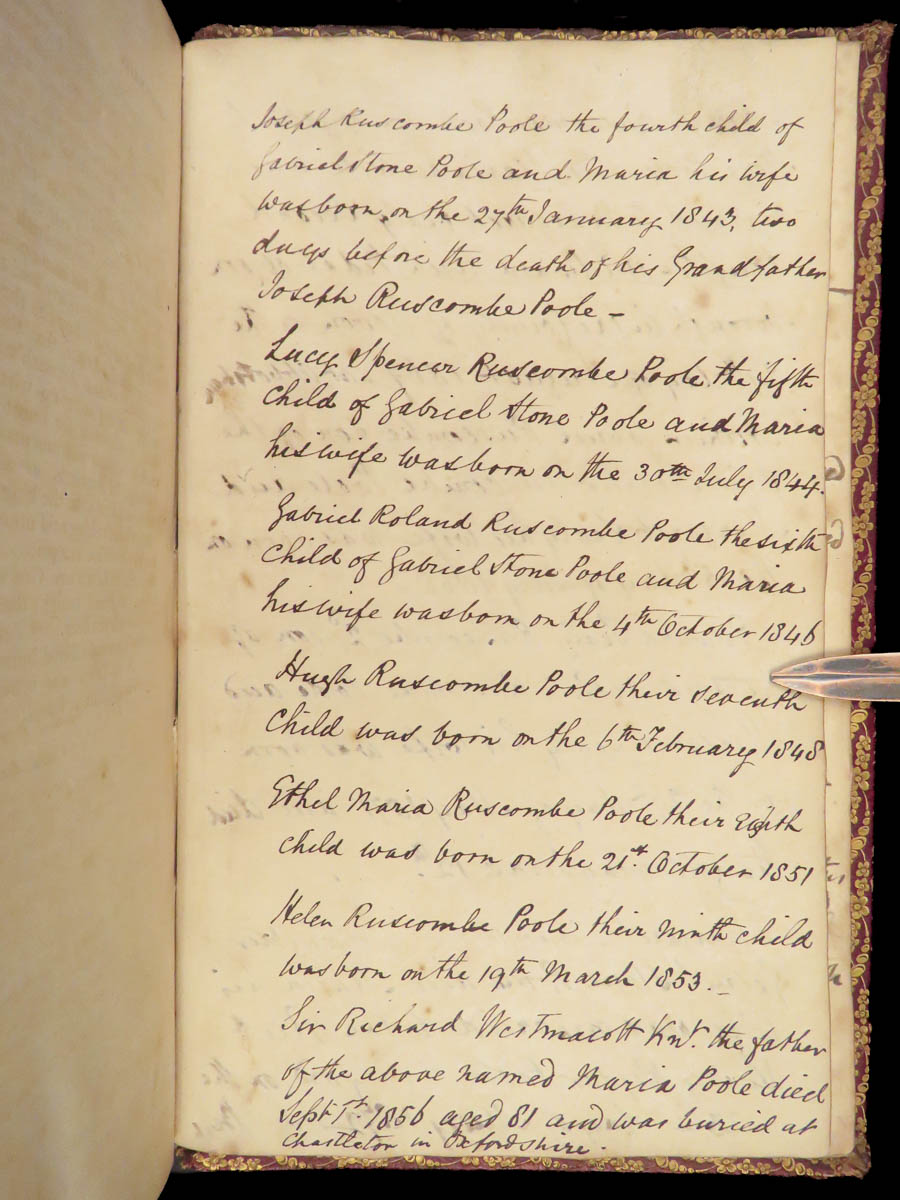 Joseph Ruscombe Poole the fourth child of
Gabriel Stone Poole and Maria his wife
was born on the 27th January 1843, two
days before the death of his Grandfather
Joseph Ruscombe Poole –
Lucy Spencer Ruscombe Poole the fifth
child of Gabriel Stone Poole and Maria
his wife was born on the 30th July 1844.
Gabriel Roland Ruscombe Poole the sixth
child of Gabriel Stone Poole and Maria
his wife was born on the 4th October 1846
Hugh Ruscombe Poole their seventh
child was born on the 6th February 1848
Ethel Maria Ruscombe Poole their Eighth
child was born on the 21st. October 1851
Helen Ruscombe Poole their ninth child
was born on the 19th March 1853. –
Sir Richard Westmacott Knt. the father
of the above named Maria Poole died
Sept. 1st. 1856 aged 81 and was buried at
Chastleton in Oxfordshire.